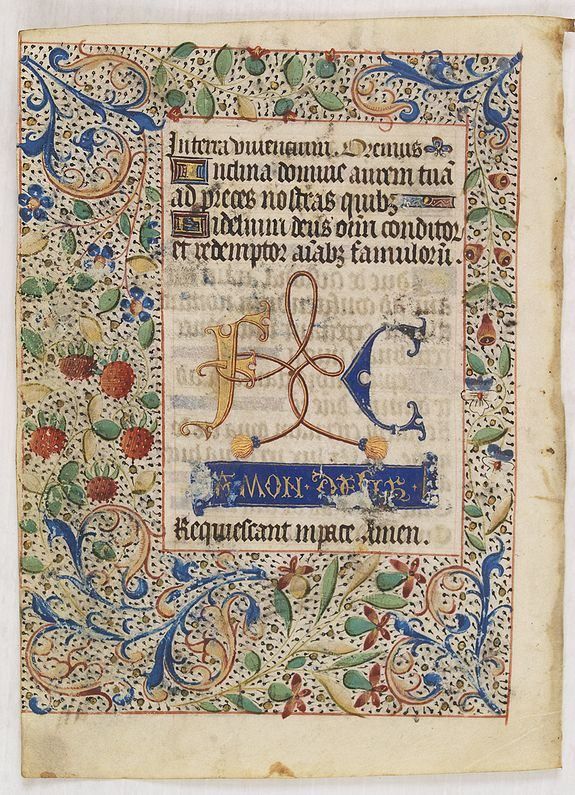 In terra viventium. Oremus
Inclina domine aurem tuā
ad preces nostras quibꝫ
Fidelium deus oīm conditor
et redemptor aīabꝫ famulorū.
F C
MON
Requiescant in pace. Amen.